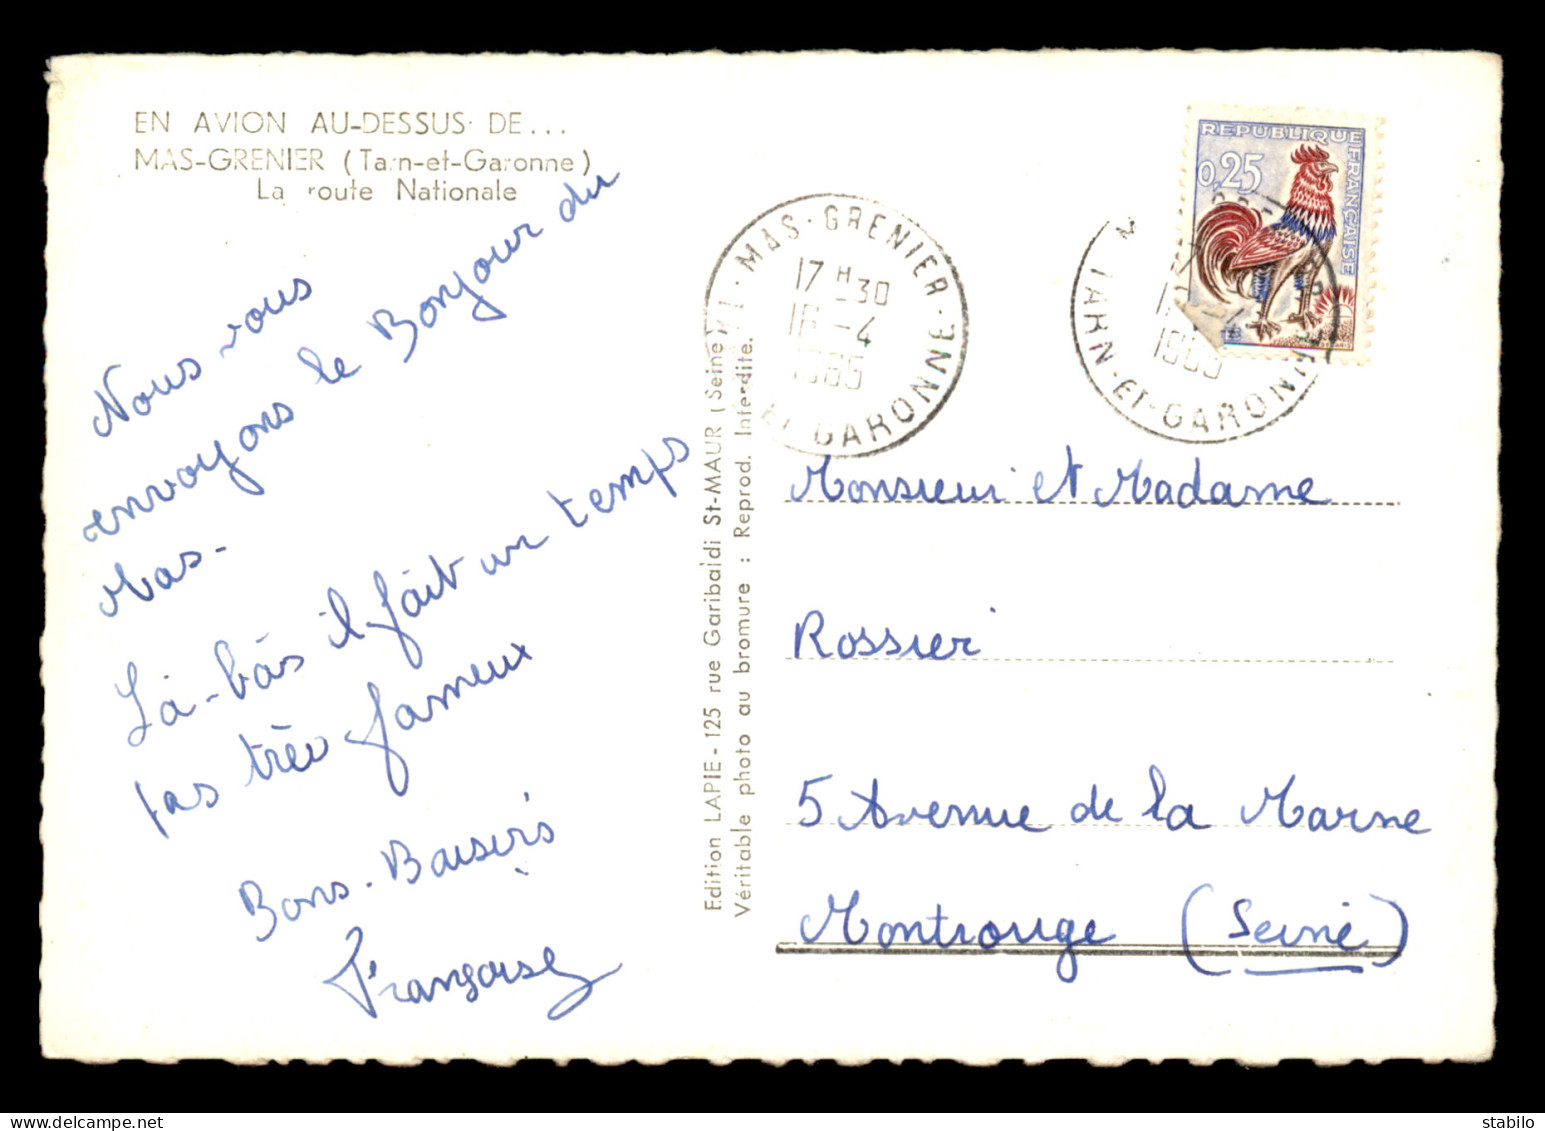 EN AVION AU-DESSUS DE...
MAS-GRENIER (Tarn-et-Garonne)
La route Nationale
Nous vous
envoyons le Bonjour du
Mas-
Là-bàs il fait un temps
pas très fameux
Bons-Baisers
Françoise
Edition LAPIE - 125 rue Garibaldi St-MAUR (Seine)
Véritable photo au bromure : Reprod. Interdite.
MAS-GRENIER
17 H 30
16 -4
1965
ET GARONNE
REPUBLIQUE FRANÇAISE
0,25
TARN-ET-GARONNE
1965
Monsieur et Madame
Rossier
5 Avenue de la Marne
Montrouge (Seine)
stabilo